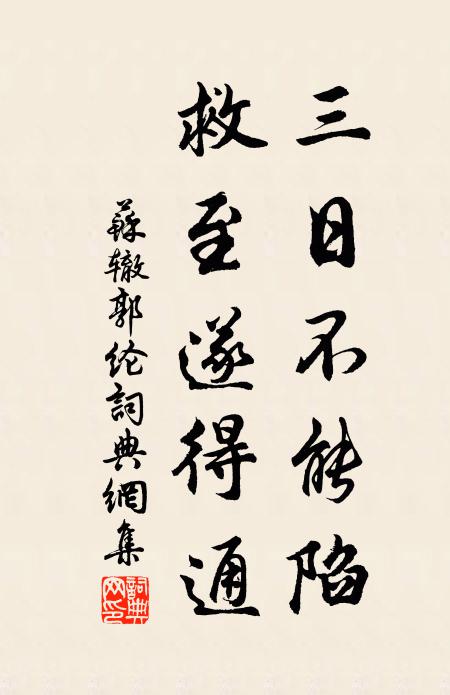 三日不能陷
救至遂得通
蘇辙郭纶詞典網集
詞典
网印